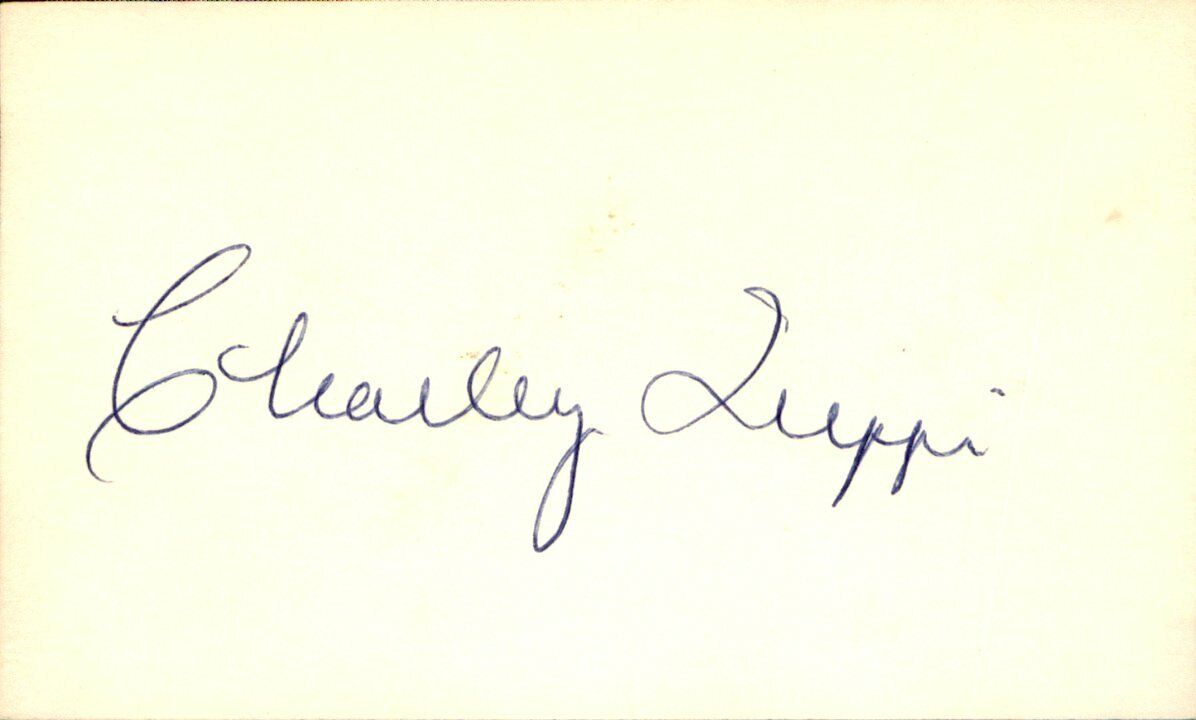 Charley Luppi